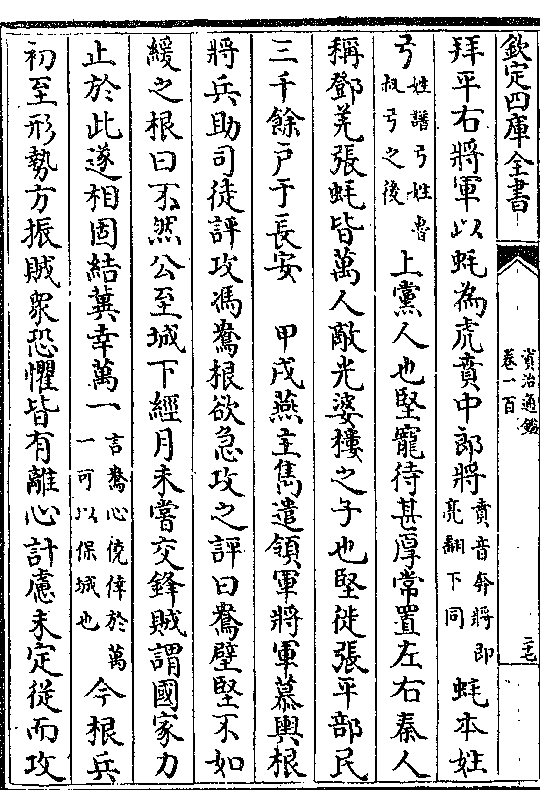 欽定四庫全書
資治通鑑
卷一百
二七
拜平右將軍以蚝為虎賁中郎將賁音奔將即亮翻下同蚝本姓
弓姓譜弓姓魯叔弓之後上黨人也堅寵待甚厚常置左右秦人
稱鄧羌張蚝皆萬人敵光婆樓之子也堅徙張平部民
三千餘戶于長安 甲戌燕主雋遣領軍將軍慕輿根
將兵助司徒評攻馮鴦根欲急攻之評曰鴦壁堅不如
緩之根曰不然公至城下經月未嘗交鋒賊謂國家力
止於此遂相固結冀幸萬一言鴦心僥倖於萬一可以保城也今根兵
初至形勢方振賊衆恐懼皆有離心計慮未定從而攻